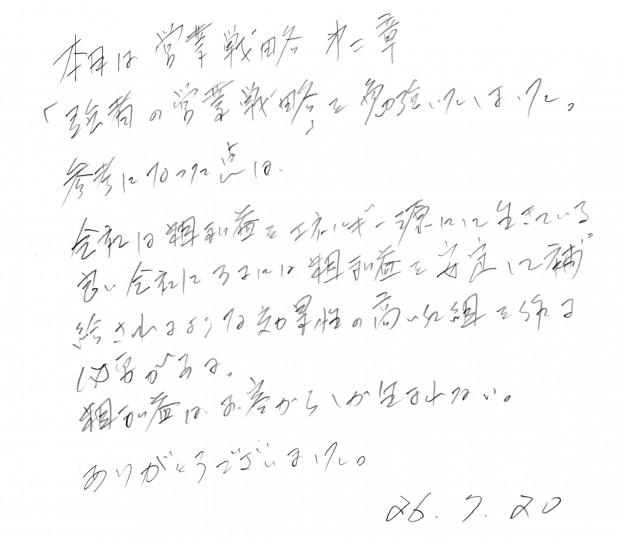 本日は営業戦略 第二章
「強者の営業戦略」を勉強いたしました。
参考になった点は、
会社は粗利益をエネルギー源にして生きている
良い会社にするには粗利益を安定して補
給されるような効率性の高い仕組を作る
必要がある。
粗利益はお客からしか生まれない。
ありがとうございました。
26.7.20